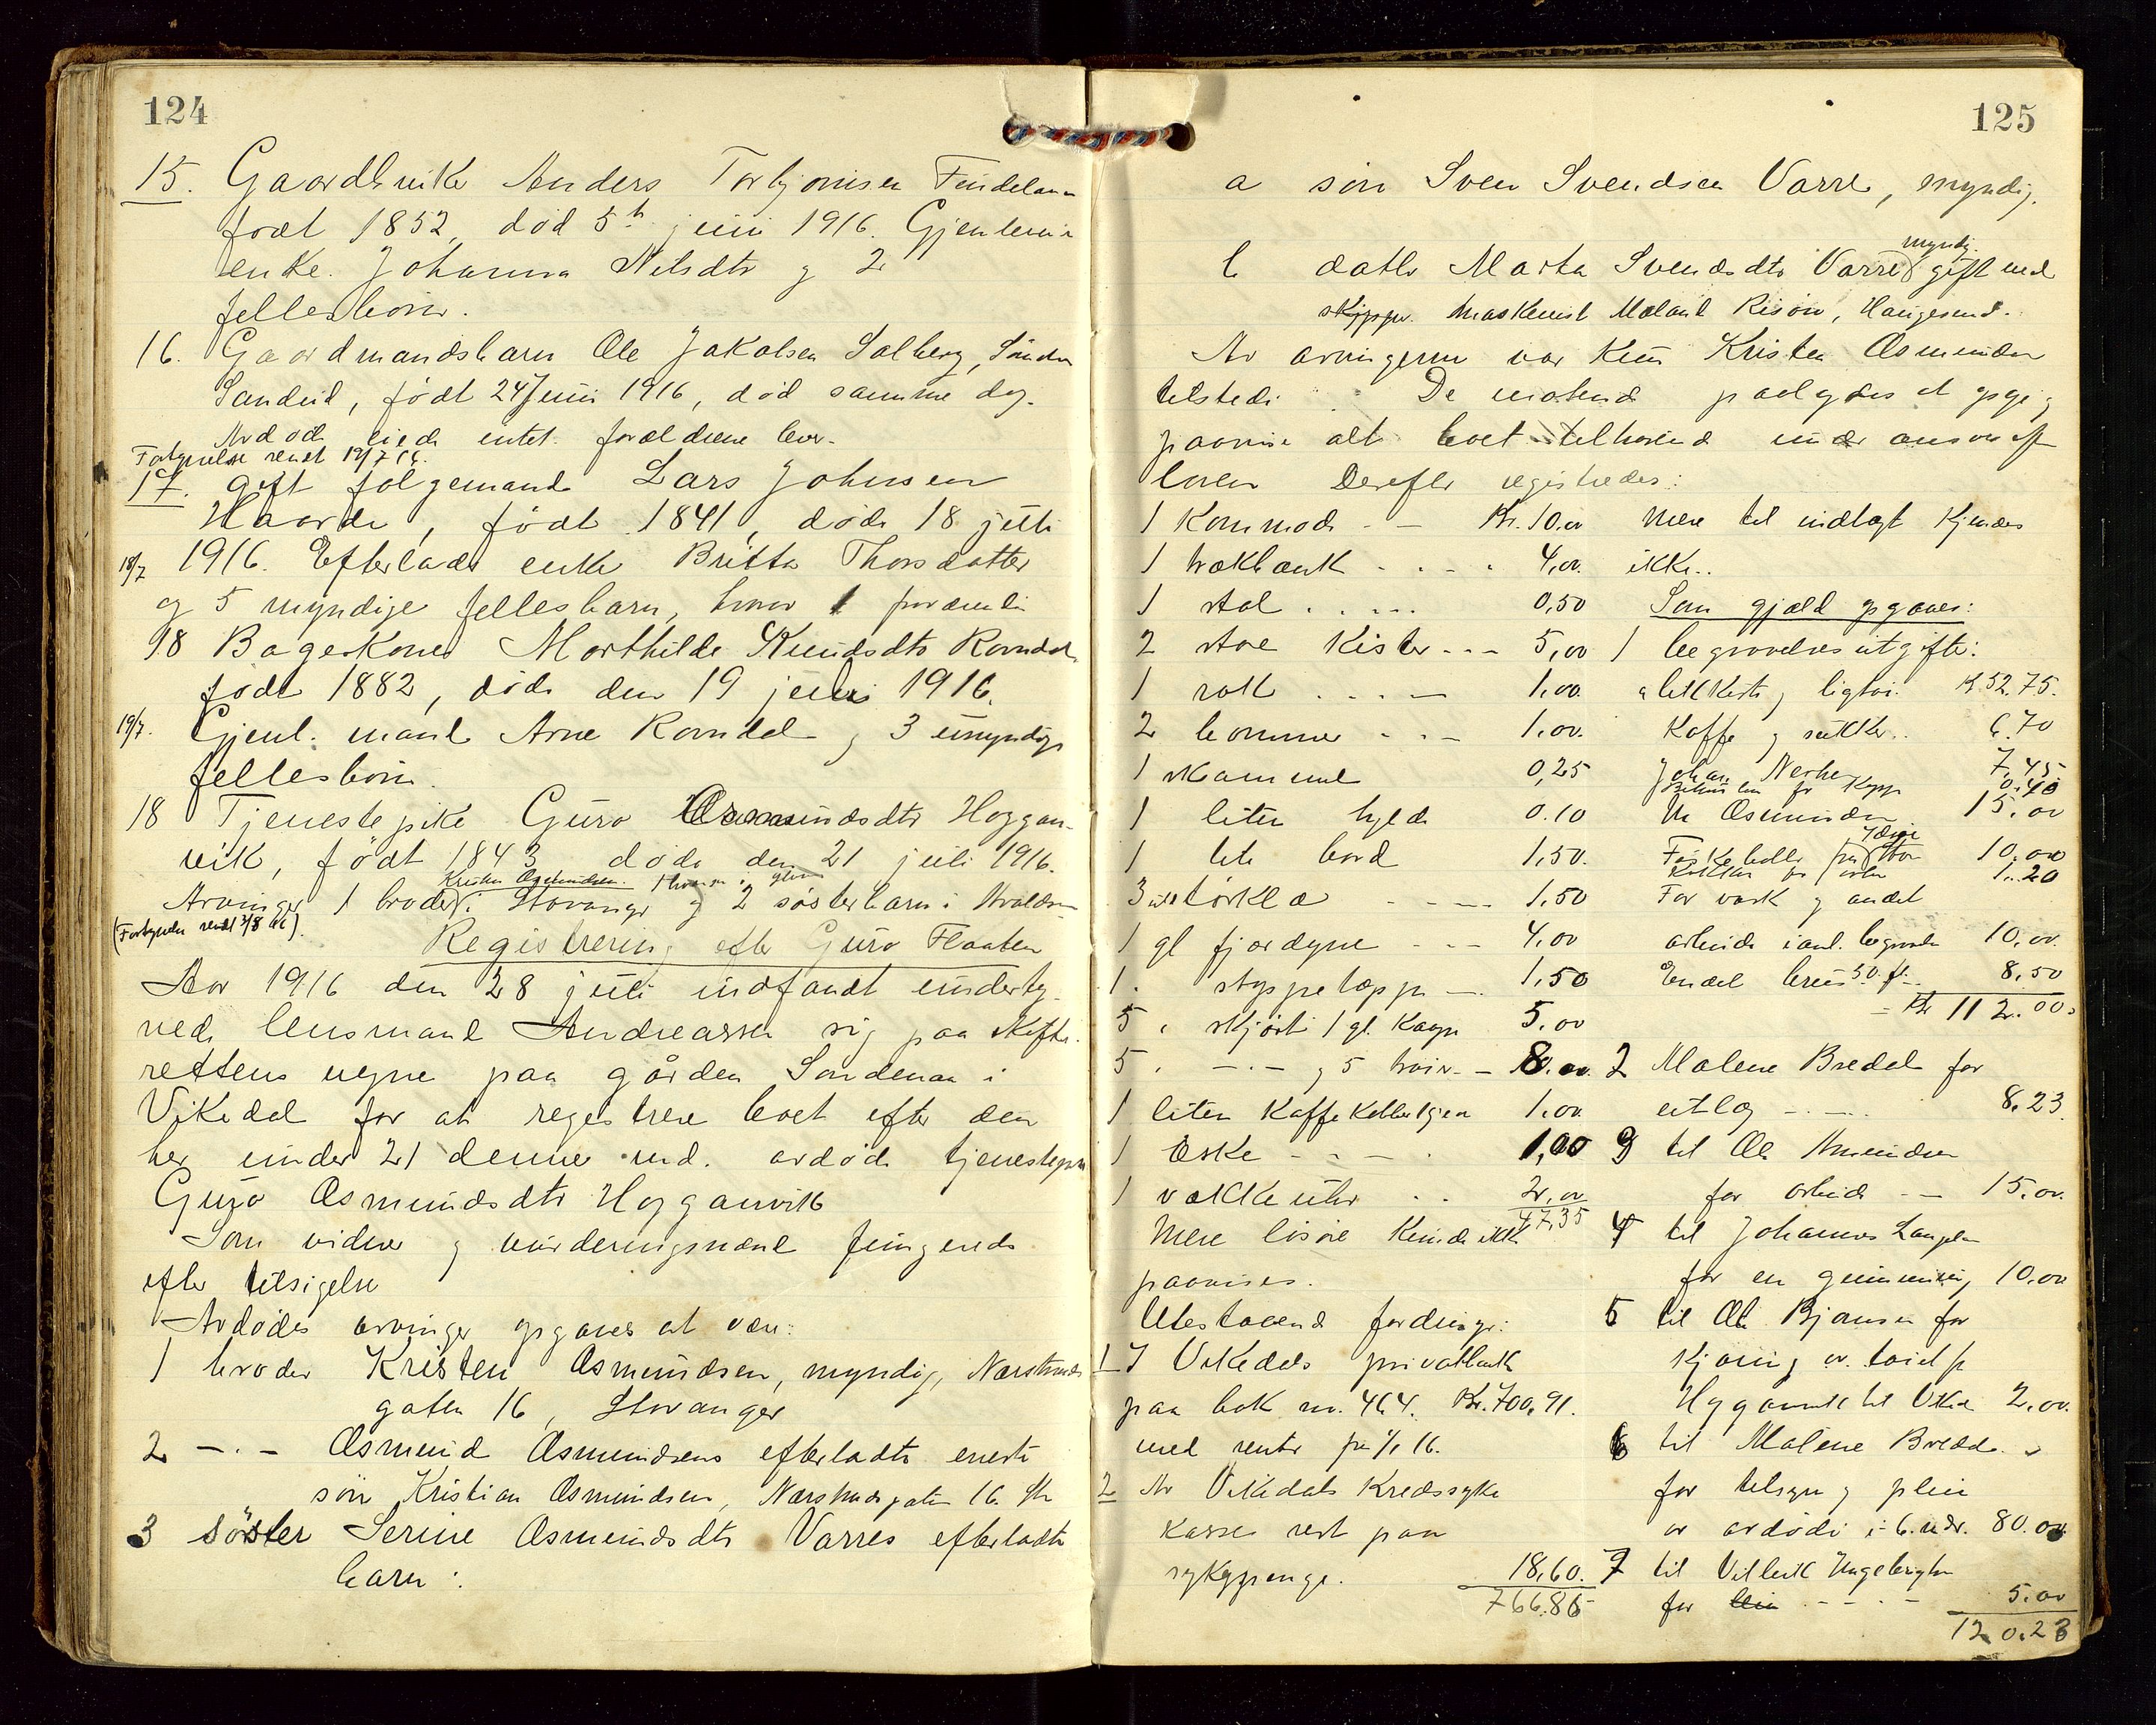 124
15. Gaardbruker Anders Torbjørnsen
født 1852, død 5te juni 1916. Gjenlevende
enke Johanna Nilsdtr og 2
fellesbørn.
16. Gaardmandsbarn Ole Jakobsen Solberg, Søndre
Sandeid, født 24 Juni 1916, død samme dag.
Avdøde eiede intet. forældrene lever.
Fortegnelse sendt 19/7 16.
17. gift følgemand Lars Johnsen
Haarde, født 1841, døde 18 juli
18/7 1916. Efterlader enke Britta Thorsdatter
og 5 myndige fellesbarn, hvorav 1
18 Bagerkone Marthilde Knudsdtr Ravndal
født 1882, døde den 19 juli 1916.
19/7. Gjenl. mand Arne Ravndal og 3 umyndige
fellesbørn.
18 Tjenestepike Guro Osmundsdtr Hoggan-
vik, født 1843 døde den 21 juli 1916.
Kristen Osmundsen.
Arvinger 1 broder i Stavanger og 2 søsterbarn i
(Fortegnelse sendt 3/8 16).
Registrering efter Guro Flaaten
Aar 1916 den 28 juli indfandt underteg-
nede lensmand Andreassen sig paa skifte-
rettens vegne paa gården Søndenaa i
Vikedal for at registrere boet efter den
her under 21 denne md. avdøde tjenestepike
Guro Osmundsdtr Hogganvik
Som vidner og vurderingsmænd fungerede
efter tilsigelse
Avdødes arvinger opgaves at være:
1 broder Kristen Osmundsen, myndig,
gaten 16, Stavanger
2 -.- Osmund Osmundsens efterladte eneste
søn Kristian Osmundsen, 16. St
3 søster Serine Osmundsdtr Varres efterladte
barn:
125
a søn Sven Svendsen Varre, myndig.
myndig.
b datter Marta Svendsdtr Varre gift med
skipper maskinist Risøen, Haugesund.
Av arvingerne var kun Kristen Osmundsen
tilstede. De møtende paalagdes at opgi og
paavise alt boet tilhørende under ansvar eft
loven Derefter registredes:
1 kommode - - Kr. 10.00
1 trækbænk - - - - 4,00.
1 stol . . . . . 0,50
2 store kister - - - 5,00
1 rok . . . . - 1,00.
2 tommer - - - 1.00.
1 skammel 0,25
1 liten hylde 0.10
1 lite bord 1,50.
3 tørklæ - - - - 1,50
1 gl fjærdyne - - - 4,00
1. støppetæppe - 1,50
5 skjørt 1 gl. kaape 5.00
5 -.- og 5 trøier - 8.00.
1 liten kaffekjel 1,00.
1 Eske - - - - 1,00
1 vækkeuhr . . 2,00
47,35
Mere løsøre kunde ikke
paavises.
Utestaaende fordringer:
1 I Vikedals privatbank
paa bok nr. 464. Kr. 700,91.
med renter fra 1/1 16.
2 Av Vikedals Kredssyke
kasse rest paa
sykepenge. 18,60.
766.86
Mere til indtægt kjendes
ikke..
Som gjæld opgaves:
1 begravelsesutgifter:
a likkiste og ligtøi. Kr. 52.75.
Kaffe og sukker.. 6.70
Johan Nerhe 7,45
0.40
M Osmundsen 15.00
10.00
1.20
For vask og andet
arbeide i anl. begravelsen 10,00.
Endel 8,50
= Kr 112.00.
2 Malene Bredal for
utlæg - . - . 8,23
3 til Ole Amundsen
for arbeide - - 15.00.
4 til Johannes
for en 10,00
5 til Ole Bjørnsen for
kjøring av tøiet fr
Hogganvik til Vike 2,00.
6 til Malene Bredal
for tilsyn og pleie
av avdøde i 6 mdr. 80.00
7 til
for - . - . - 5.00
120.23